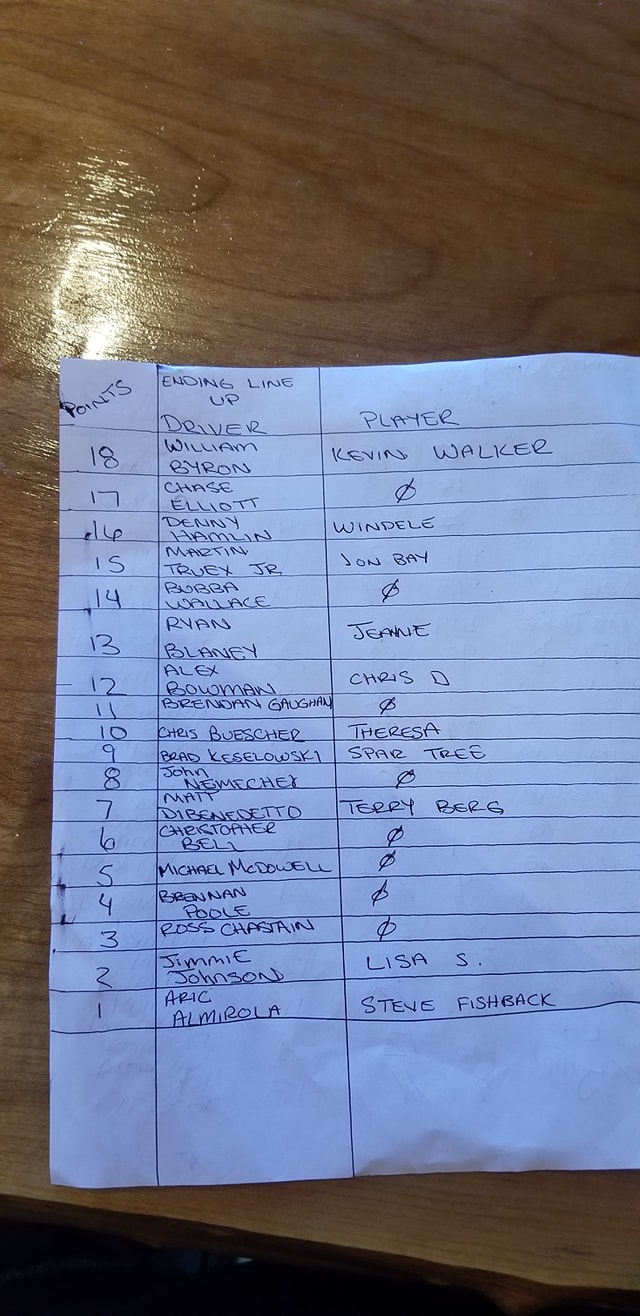 POINTS ENDING LINE
UP
DRIVER PLAYER
18 WILLIAM BYRON KEVIN WALKER
17 CHASE ELLIOTT Ø
16 DENNY HAMLIN WINDELE
15 MARTIN TRUEX JR JON BAY
14 BUBBA WALLACE Ø
13 RYAN BLANEY JEANNE
12 ALEX BOWMAN CHRIS D
11 BRENDAN GAUGHAN Ø
10 CHRIS BUESCHER THERESA
9 BRAD KESELOWSKI SPAR TREE
8 John NEMECHEK Ø
7 MATT DIBENEDETTO TERRY BERG
6 CHRISTOPHER BELL Ø
5 MICHAEL McDOWELL Ø
4 BRENNAN POOLE Ø
3 ROSS CHASTAIN Ø
2 Jimmie JOHNSON LISA S.
1 ARIC ALMIROLA STEVE FISHBACK